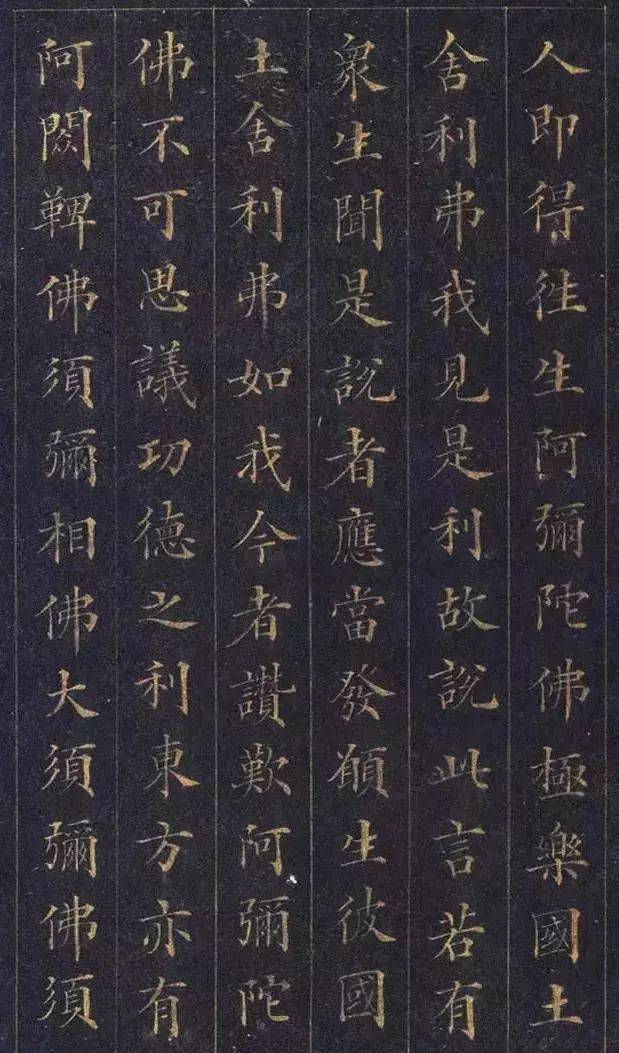 人即得徃生阿彌陀佛極樂國土
舍利弗我見是利故説此言若有
衆生聞是説者應當發願生彼國
土舍利弗如我今者讚歎阿彌陀
佛不可思議功德之利東方亦有
阿閦鞞佛須彌相佛大須彌佛須